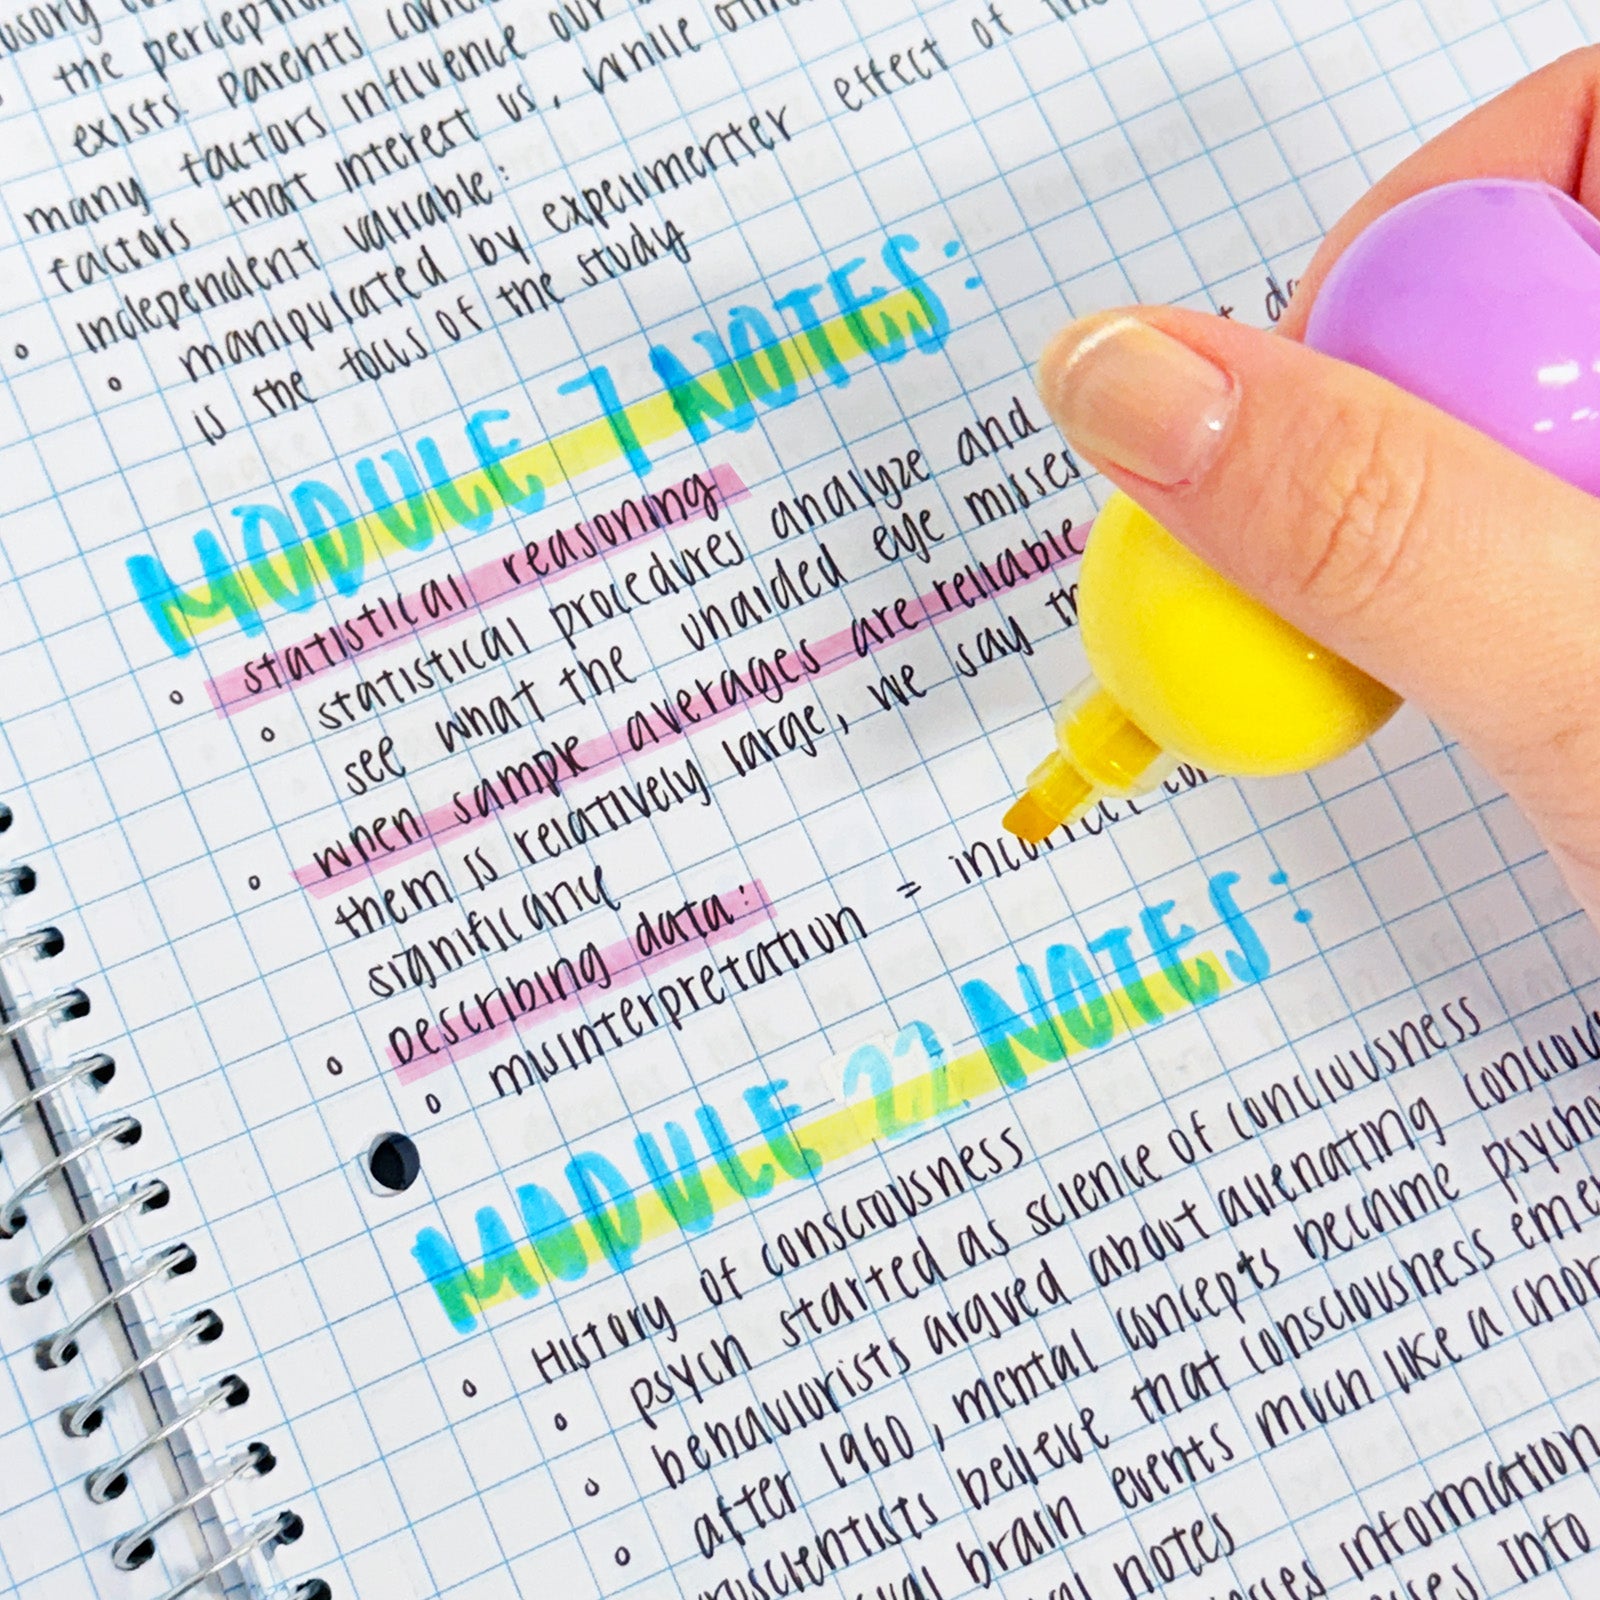 the perception
exists. parents
many factors influence our
factors that interest us, while
• Independent variable:
• manipulated by experimenter effect of
is the focus of the study
MODULE 7 NOTES:
• statistical reasoning
• statistical procedures analyze and
see what the unaided eye misses
• when sample averages are reliable
them is relatively large, we say
significance
• Describing data:
• misinterpretation = incorrect
MODULE 22 NOTES:
• History of consciousness
• psych started as science of conciousness
• behaviorists argued about alienating
• after 1960, mental concepts became
believe that consciousness
brain events much like a
notes
information
into